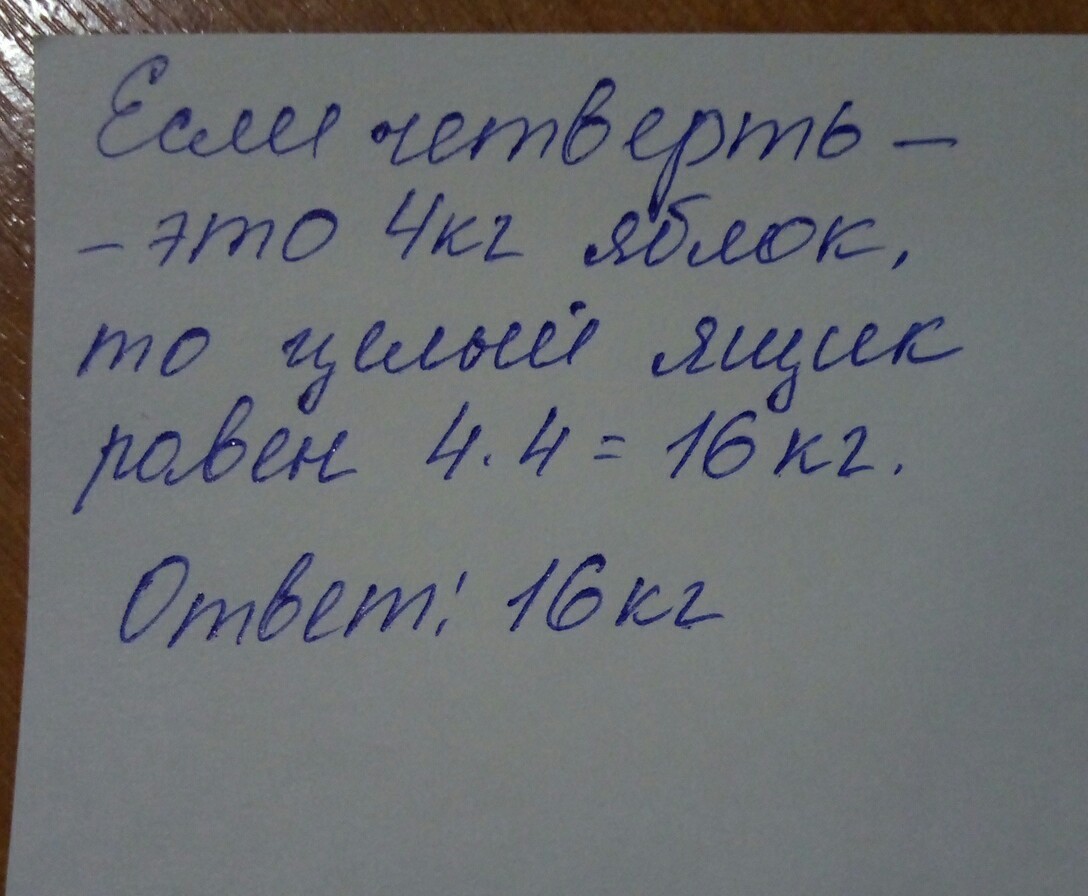 Если четверть –
– это 4кг яблок,
то целый ящик
равен 4·4=16кг.
Ответ: 16кг